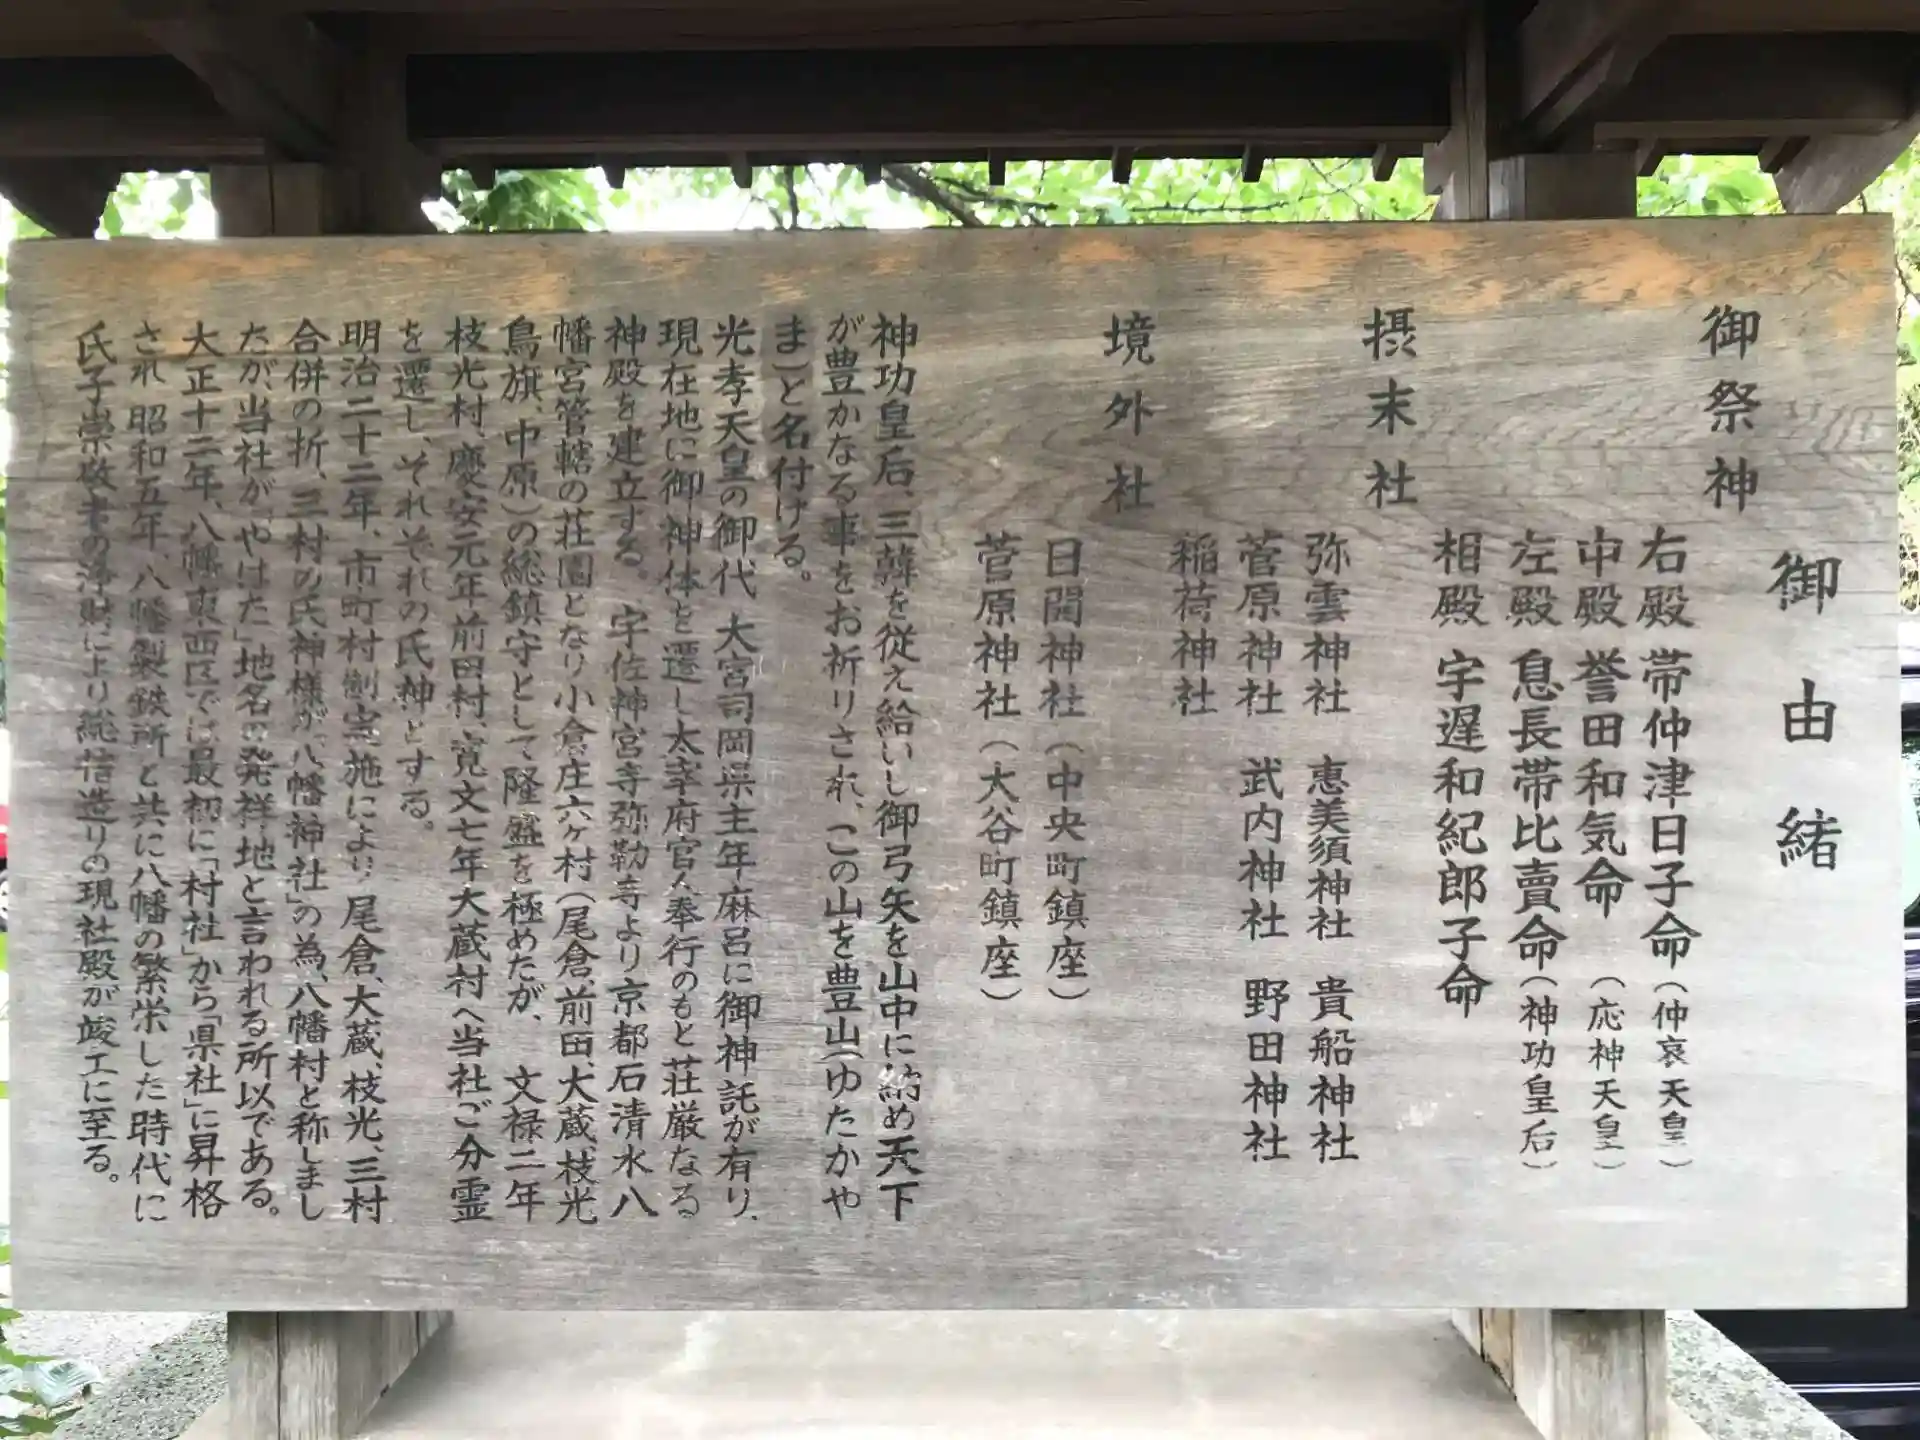 御由緒
御祭神
右殿 帯仲津日子命（仲哀天皇）
中殿 誉田和気命（応神天皇）
左殿 息長帯比賣命（神功皇后）
相殿 宇遅和紀郎子命
摂末社
弥雲神社 恵美須神社 貴船神社
菅原神社 武内神社 野田神社
稲荷神社
境外社
日閣神社（中央町鎮座）
菅原神社（大谷町鎮座）
神功皇后、三韓を従え給いし御弓矢を山中に納め天下
が豊かなる事をお祈りされ、この山を豊山（ゆたかや
ま）と名付ける。
光孝天皇の御代 大宮司岡県主年麻呂に御神託が有り、
現在地に御神体を遷し太宰府官人奉行のもと荘厳なる
神殿を建立する。宇佐神宮寺弥勒寺より京都石清水八
幡宮管轄の荘園となり小倉庄六ヶ村（尾倉、前田、大蔵、枝光
鳥旗、中原）の総鎮守として隆盛を極めたが、文禄二年
枝光村、慶安元年前田村、寛文七年大蔵村へ当社ご分霊
を遷し、それぞれの氏神とする。
明治二十二年、市町村制実施により尾倉、大蔵、枝光、三村
合併の折、三村の氏神様が「八幡神社」の為、八幡村と称しまし
たが、当社が「やはた」地名の発祥地と言われる所以である。
大正十二年、八幡東西区では最初に「村社」から「県社」に昇格
され 昭和五年、八幡製鉄所と共に八幡の繁栄した時代に
氏子崇敬者の浄財により総桧造りの現社殿が竣工に至る。